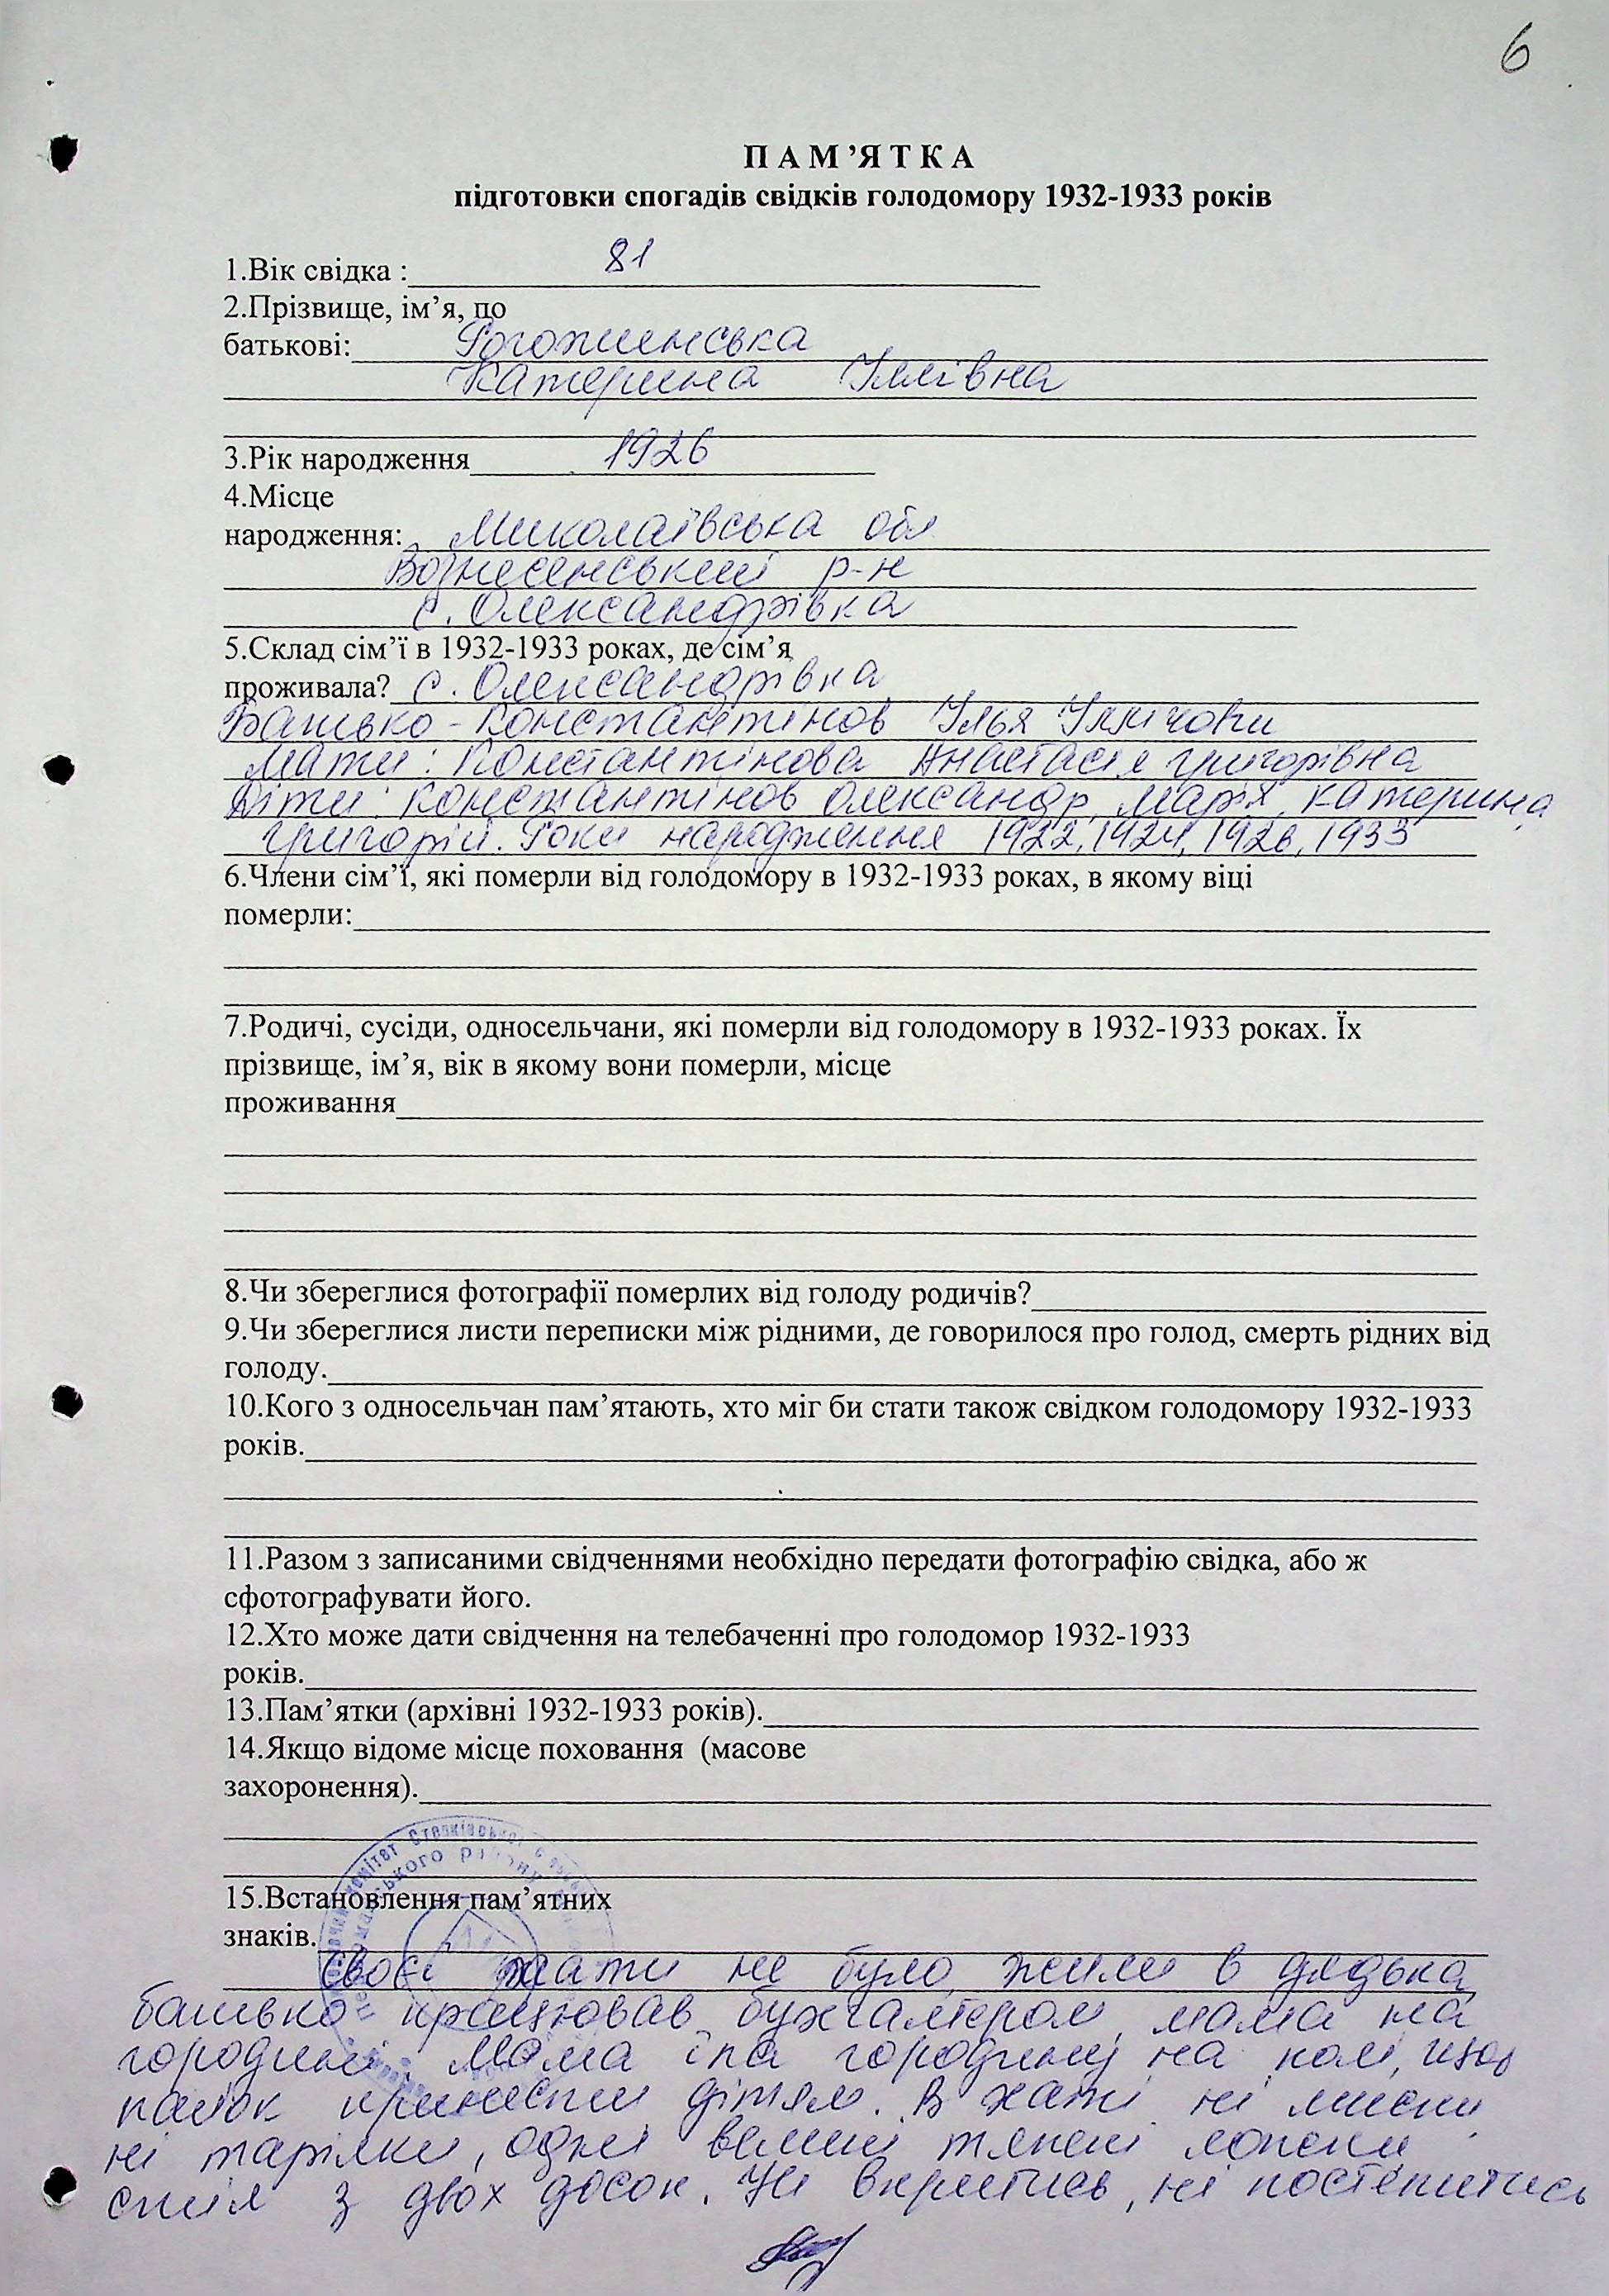 6
ПАМ’ЯТКА
підготовки спогадів свідків голодомору 1932-1933 років
1.Вік свідка : 81
2.Прізвище, ім’я, по
батькові: Рогожинська
Катерина Іллівна
3.Рік народження 1926
4.Місце
народження: Миколаївська обл
Вознесенський р-н
с. Олександрівка
5.Склад сім’ї в 1932-1933 роках, де сім’я
проживала? с. Олександрівка
Батько - Константінов Ілья Іллічови
Мати: Константінова Анастасія Григорівна
Діти: Константінов Олександр, Марія, Катерина,
Григорій. Роки народження 1922, 1924, 1926, 1933
6.Члени сім’ї, які померли від голодомору в 1932-1933 роках, в якому віці
померли:
7.Родичі, сусіди, односельчани, які померли від голодомору в 1932-1933 роках. Їх
прізвище, ім’я, вік в якому вони померли, місце
проживання
8.Чи збереглися фотографії померлих від голоду родичів?
9.Чи збереглися листи переписки між рідними, де говорилося про голод, смерть рідних від
голоду.
10.Кого з односельчан пам’ятають, хто міг би стати також свідком голодомору 1932-1933
років.
11.Разом з записаними свідченнями необхідно передати фотографію свідка, або ж
сфотографувати його.
12.Хто може дати свідчення на телебаченні про голодомор 1932-1933
років.
13.Пам’ятки (архівні 1932-1933 років).
14.Якщо відоме місце поховання (масове
захоронення).
15.Встановлення пам’ятних
знаків.
Своєї хати не було, жили в дядька,
батько працював бухгалтером, мама на
городині. Мама їла городину на полі, щоб
пайок принести дітям. В хаті ні миски
ні тарілки, одні великі ложки,
стіл з двох досок. Ні вкритись, ні постелитись